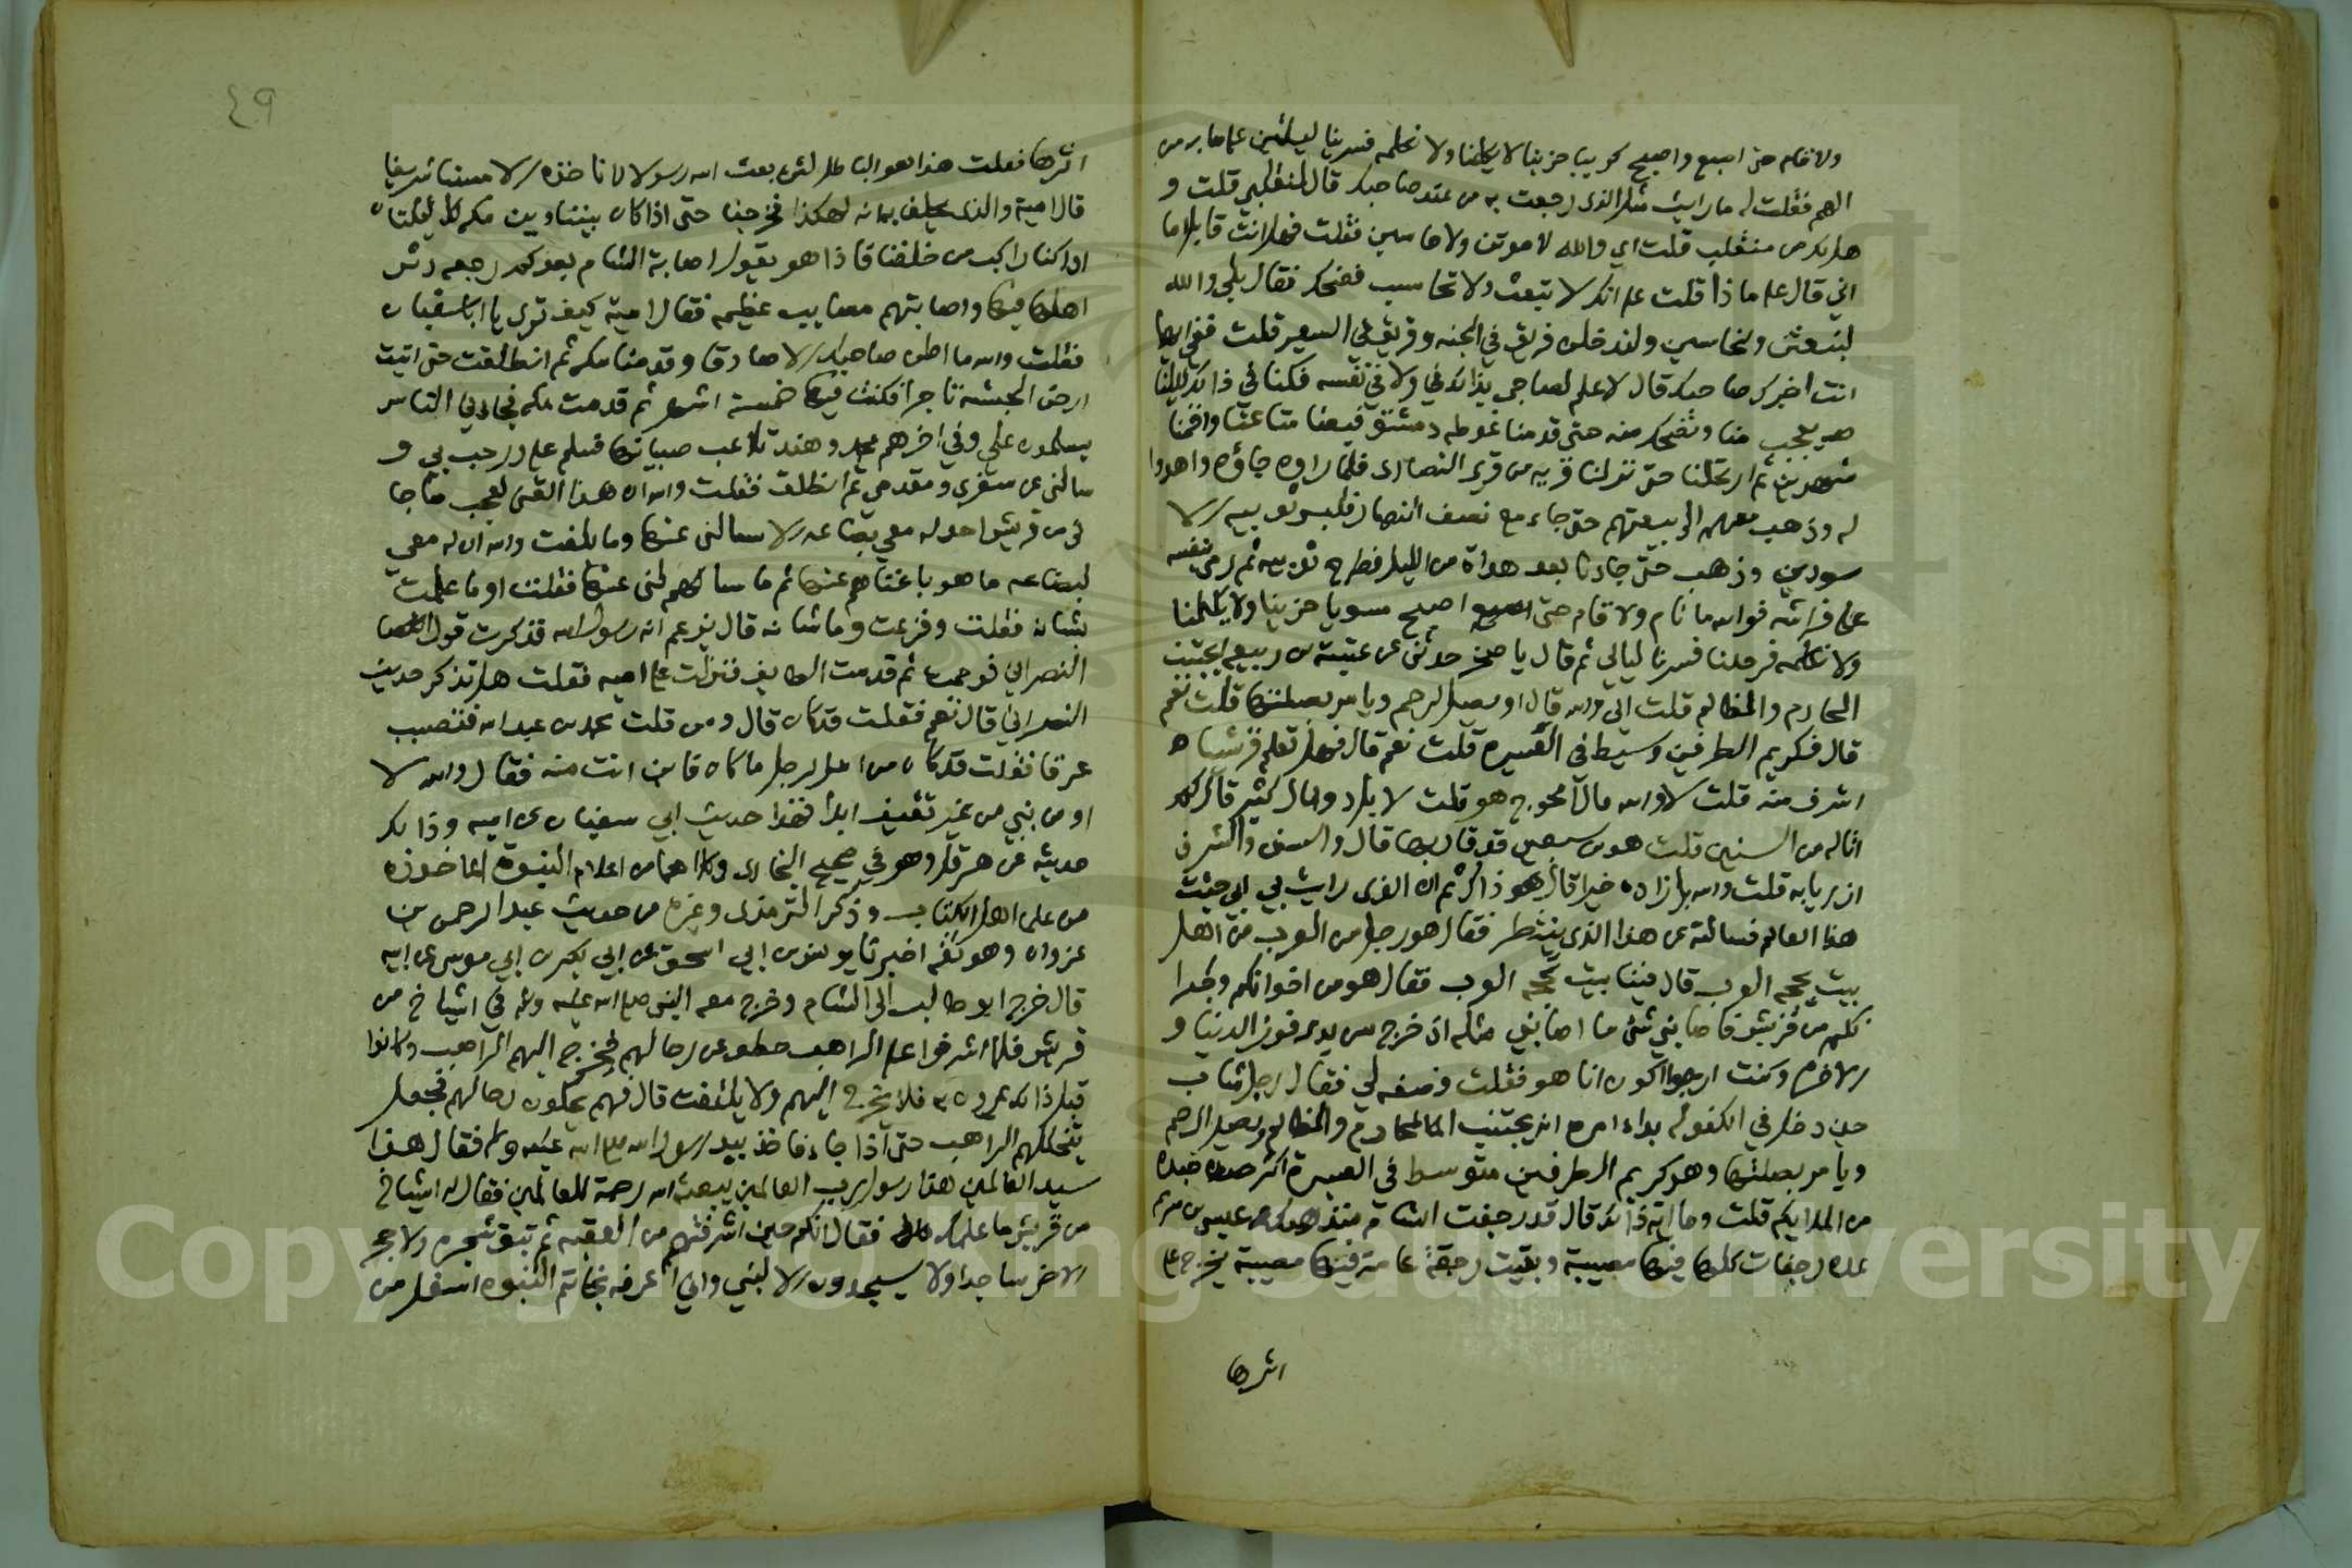 ولا قام حتى اصبح واصبح كريبا حزينا لا يكلمنا ولا نكلمه فسرينا ليلتين علىما به من
الهم فقلت له ما رايت مثل الذى رجعت به من عند صاحبك قال لمنقلبي قلت و
هل لك من منقلب قلت اي والله لاموتن ولاحاسبن فقلت فهل انت قابل اما
اني قال على ماذا قلت على انك لا تبعث ولا تحاسب فضحك فقال بلى والله
لنبعثن ولنحاسبن وليدخلن فريق في الجنه وفريق في السعير قلت ففي ايهما
انت اخبرك صاحبك قال لا علم لصاحبي بذلك في ولا في نفسه فكنا في ذلك ليلتنا
يعجب منا ونضحك منه حتى قدمنا غوطه دمشق فبعنا متاعنا واقمنا
شهرين ثم ارتحلنا حتى نزلنا قريه من قرى النصارى فلما راوه جاؤه واهدوا
له وذهب معهم الى بيعتهم حتى جاء مع نصف النهار فلبس ثوبيه الا
سودين وذهب حتى جاءنا بعد هداة من الليل فطرح ثوبيه ثم رمى بنفسه
على فراشه فوالله ما نام ولا قام حتى اصبح مسويا حزينا ولا يكلمنا
ولا نكلمه فرحلنا فسرنا ليالي ثم قال يا صخر حدثني عن عتبة بن ربيعه ايجتنب
المحارم والمظالم قلت اي والله قال او يصل الرحم ويامر بصلتها قلت نعم
قال فكريم الطرفين وسيط فى العشيره قلت نعم قال فهل تعلم قرشيا
اشرف منه قلت لا والله قال امحوج هو قلت لا بل ذو مال كثير قال كم
اتى له من السنين قلت هو بن سبعين قد قاربها قال والسن والشرف
ازريا به قلت والله بل زاده خيرا قال هو ذاك ثم ان الذى رايت بي اني جئت
هذا العالم فسالته عن هذا الذى ينتظر فقال هو رجل من العرب من اهل
بيت يحجه العرب قال فينا بيت تحجه العرب فقال هو من اخوانكم وجيرا
نكم من قريش فاصابني شئ ما اصابني مثله اذ خرج من يدى فوز الدنيا و
الاخره وكنت ارجوا اكون انا هو فقلت فصفه لي فقال رجل شاب
حين دخل في الكهوله بداء امره انه يجتنب المحارم والمظالم ويصل الرحم
ويامر بصلتها وهو كريم الطرفين متوسط في العشيرة اكثر جنده
من الملايكم قلت وما اية ذلك قال قد رجفت الشام منذ هلك عيسى بن مريم
عدة رجفات كلها فيها مصيبة وبقيت رجفة عامة فيها مصيبة يخرج على
اثرها
٤٩
اثرها فقلت هذا هو الباطل لئن بعث الله رسولا لا ناخذه الا مسنا شريفا
قال امية والذى يحلف به انه لهكذا فخرجنا حتى اذا كان بيننا وبين مكه ليلتان
ادركنا راكب من خلفنا فاذا هو يقول اصابة الشام بعدكم رجفه دثر
اهلها فيها واصابتهم مصايب عظيمه فقال امية كيف ترى يا ابا سفيان
فقلت والله ما اظن صاحبك الا صادقا وقدمنا مكه ثم انطلقت حتى اتيت
ارض الحبشه تاجرا فكنت فيها خمسة اشهر ثم قدمت مكه فجاءني الناس
يسلمون علي وفي اخرهم محمد وهند تلاعب صبيانها فسلم علي ورحب بي و
سالني عن سفرى ومقدمي ثم انطلق فقلت والله ان هذا الفتى لعجب ما جا
ني من قريش احد له معي بضاعه الا سالني عنها وما بلغت والله ان له معي
لبضاعه ما هو باغناهم عنها ثم ما سالني عنها فقلت او ما علمت
بشانه فقلت وفزعت وما شانه قال يزعم انه رسول الله فذكرت قول
النصراني فوجمت ثم قدمت الطايف فنزلت على اميه فقلت هل تذكر حديث
النصراني قال نعم فقلت قد كان قال ومن قلت محمد بن عبد الله فتصبب
عرقا فقلت قد كان من امر الرجل ما كان فاين انت منه فقال والله لا
اومن بنبي من غير ثقيف ابدا فهذا حديث ابي سفيان عن اميه وذلك
حديثه عن هرقل وهو في صحيح البخارى وكلاهما من اعلام النبوة الماخوذه
من علما اهل الكتاب وذكر الترمذى وغيره من حديث عبد الرحمن بن
غزوان وهو ثقه اخبرنا يونس بن ابي اسحق عن ابي بكر بن ابي موسى عن ابيه
قال خرج ابو طالب الى الشام وخرج معه النبي صلى الله عليه وسلم في اشياخ من
قريش فلما اشرفوا على الراهب حطوا عن رحالهم فخرج اليهم الراهب وكانوا
قبل ذلك يمرون به فلا يخرج اليهم ولا يلتفت قال فهم يحلون رحالهم فجعل
يتخللهم الراهب حتى اذا جاء فاخذ بيد رسول الله صلى الله عليه وسلم فقال هذا
سيد العالمين هذا رسول رب العالمين يبعثه الله رحمة للعالمين فقال له اشياخ
من قريش ما علمك فقال انكم حين اشرفتم من العقبه لم تبق شجره ولا حجر
الا خر ساجدا ولا يسجدون الا لنبي واني اعرفه بخاتم النبوه اسفل من
Copyright © King Saud University